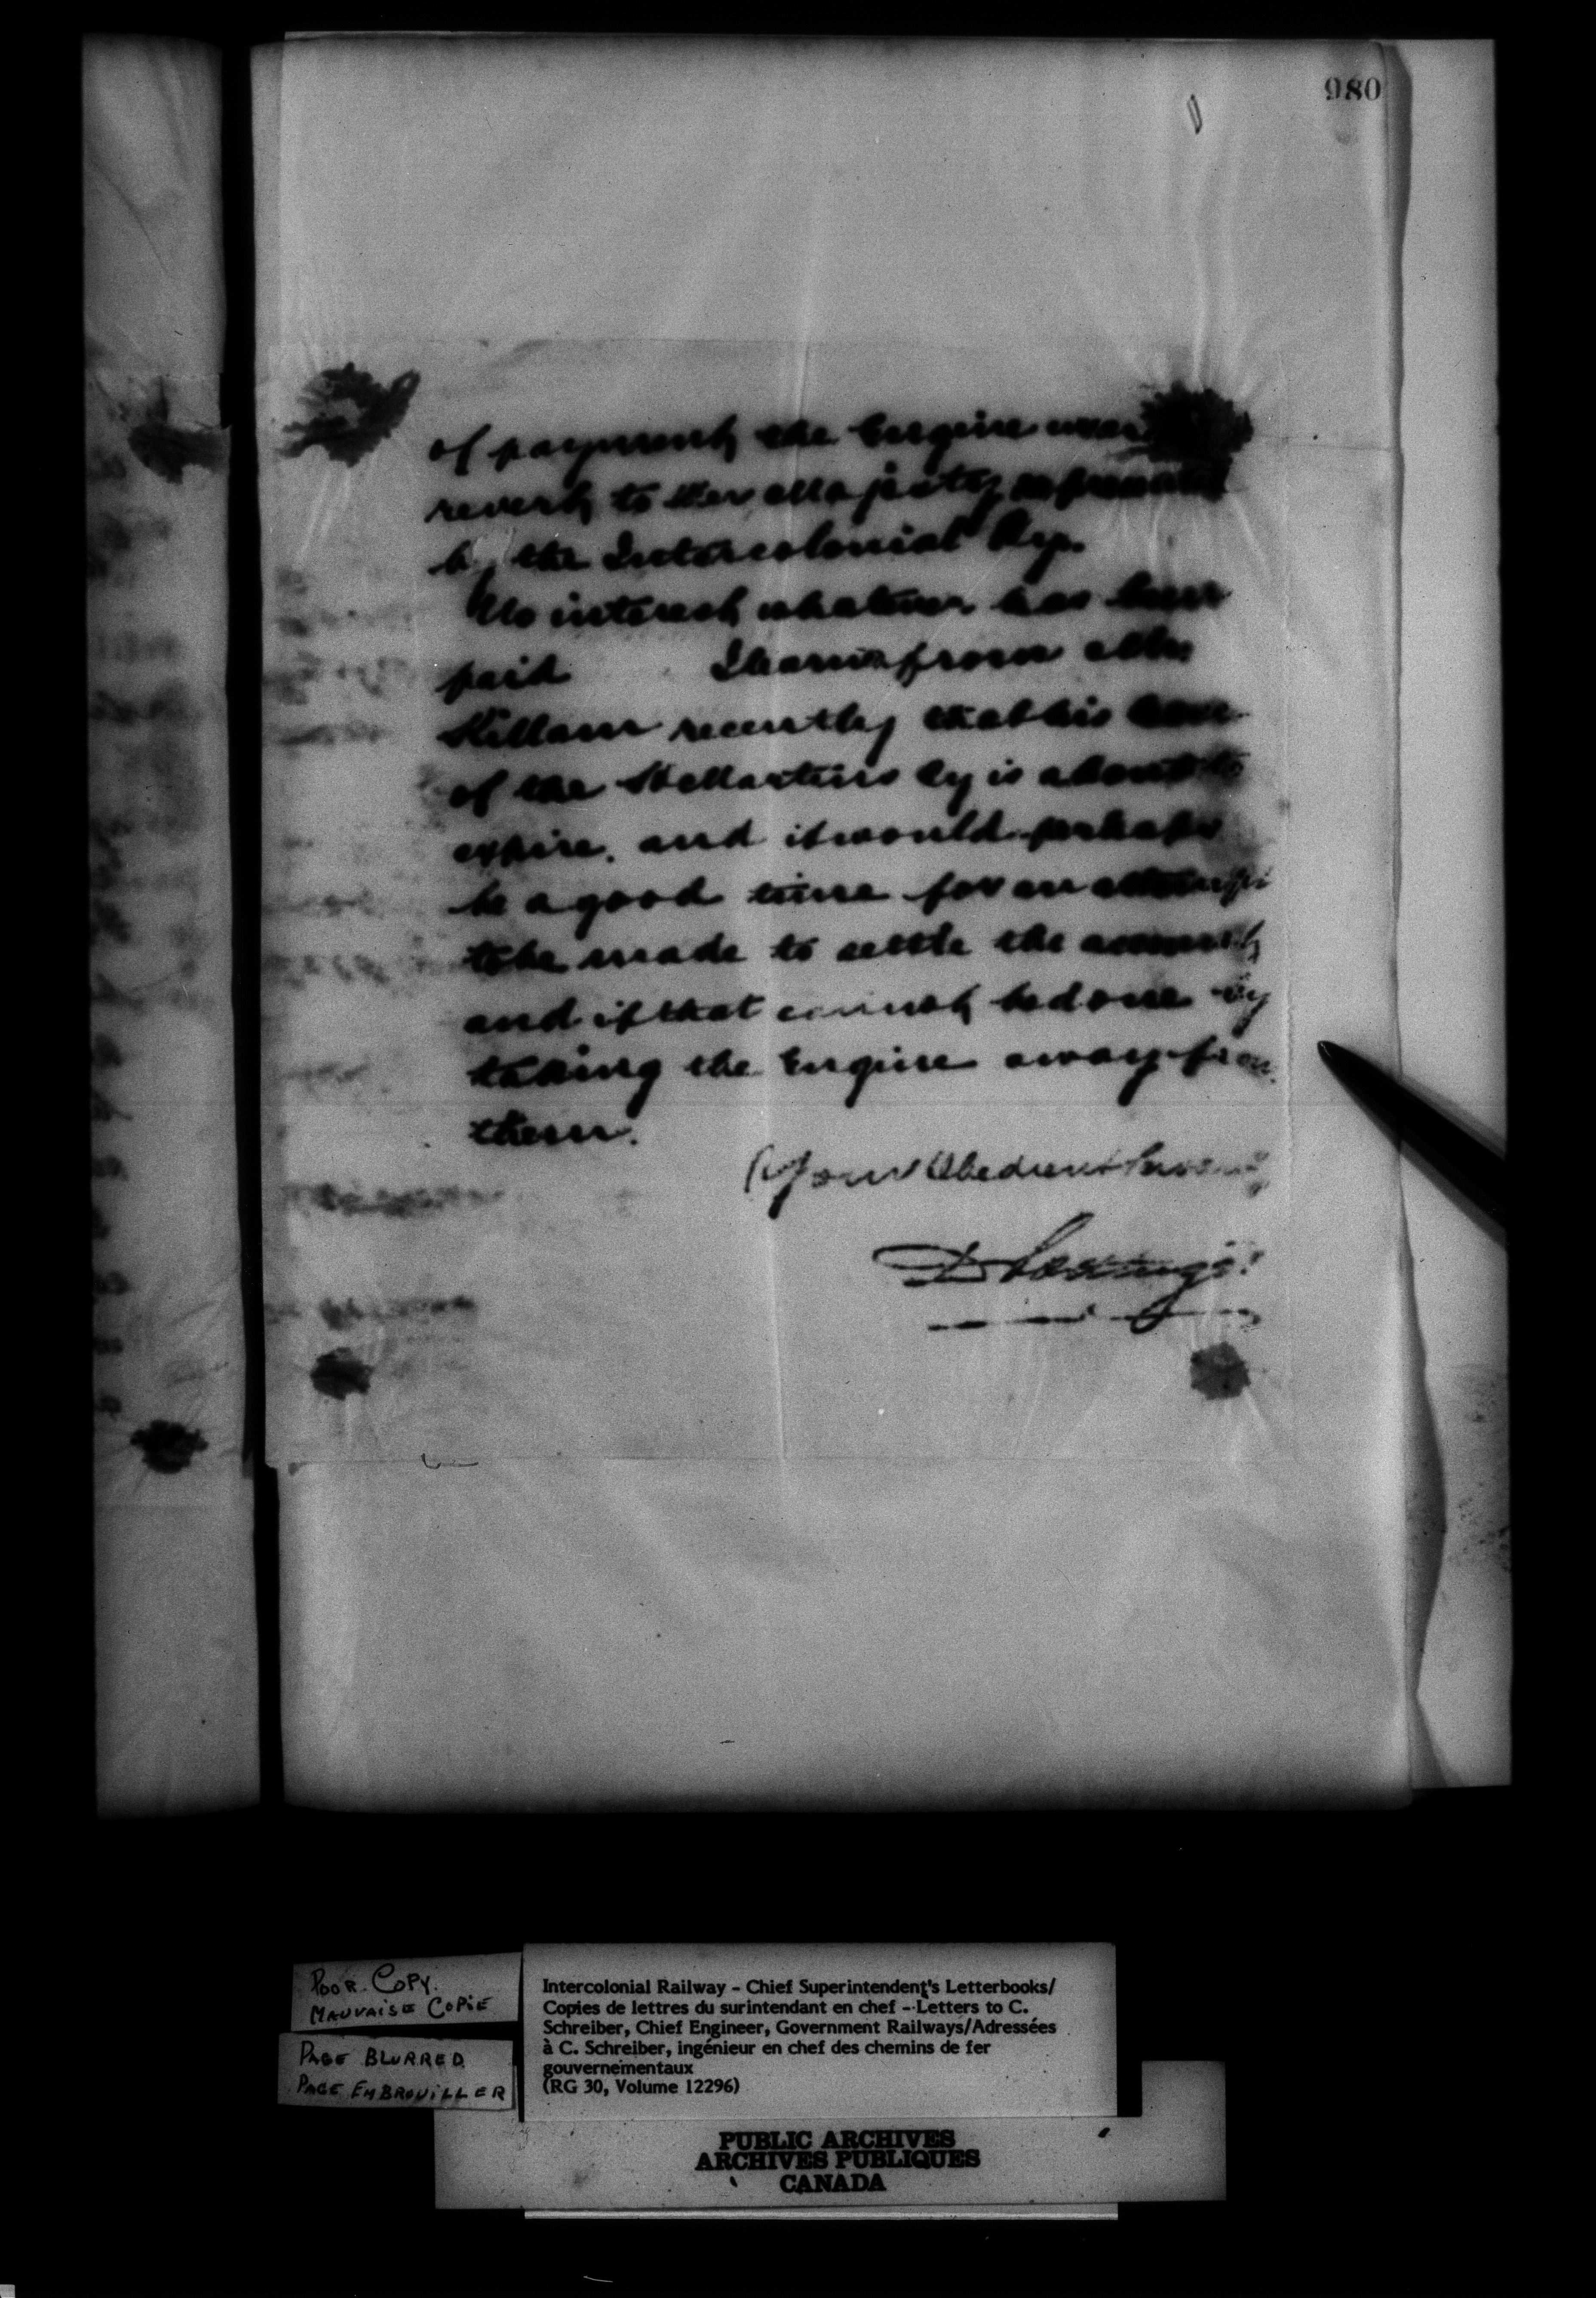 980
of payment the Engine was
revert to Her Majesty represented
by the Intercolonial Ry.
No interest whatever has been
paid I learn from Mr
Killam recently that his lease
of the St Martins Ry is about to
expire. and it would perhaps
be a good time for an attempt
to be made to settle the account
and if that cannot be done by
taking the Engine away from
them.
Your Obedient Servant
D Pottinger
POOR COPY.
MAUVAISE COPIE
PAGE BLURRED
PAGE EMBROUILLER
Intercolonial Railway - Chief Superintendent's Letterbooks/
Copies de lettres du surintendant en chef - Letters to C.
Schreiber, Chief Engineer, Government Railways/Adressées
à C. Schreiber, ingénieur en chef des chemins de fer
gouvernementaux
(RG 30, Volume 12296)
PUBLIC ARCHIVES
ARCHIVES PUBLIQUES
CANADA